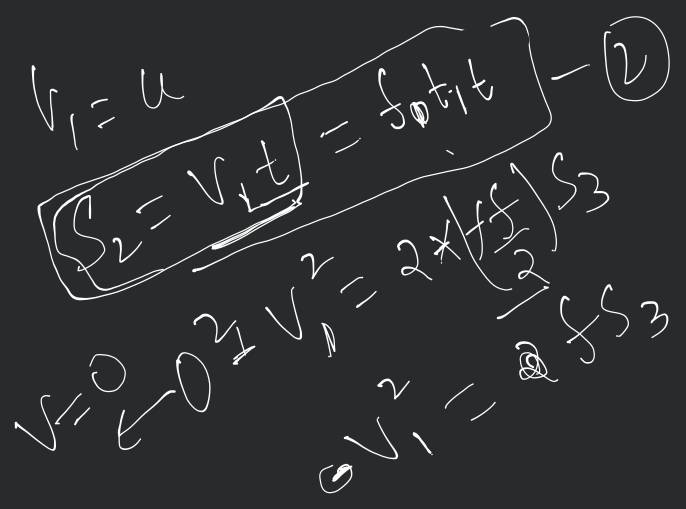 V₁ = u
S₂ = V₁t = f t₁t — ②
V = 0
0² = V₁² = 2 * (f/2) S₃
V₁² = f S₃